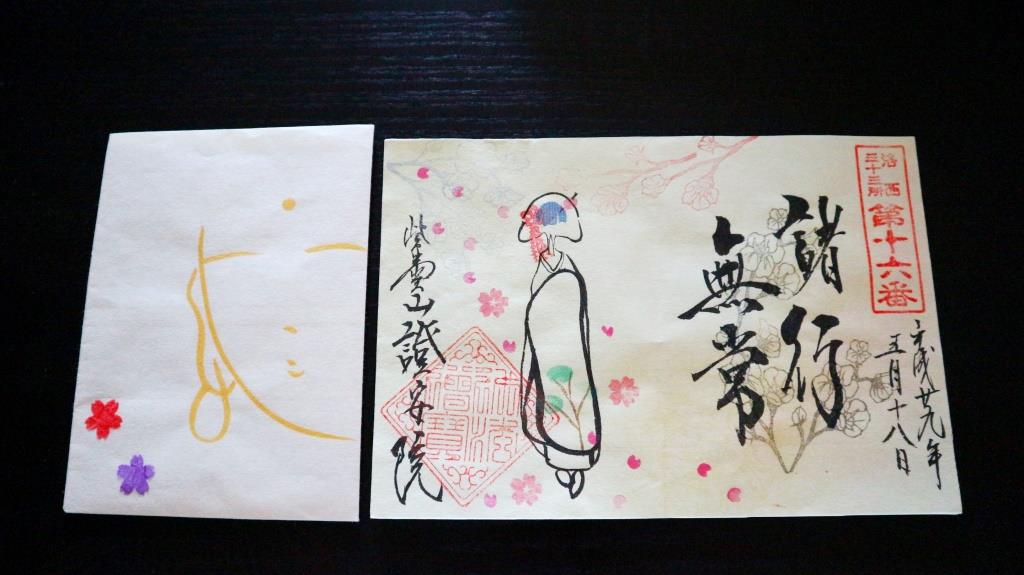 洛西
三十三所
第十六番
諸行
無常
平成廿九年
五月十八日
紫雲山證安院
佛法僧寶